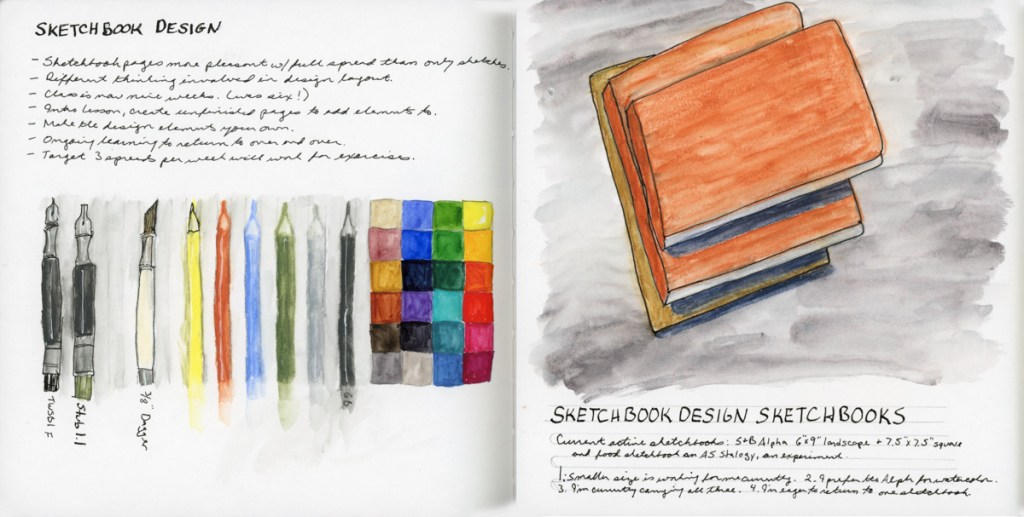 SKETCHBOOK DESIGN
- Sketchbook pages more pleasant w/ full spread than only sketches.
- Different thinking involved in design layout.
- Class is now nine weeks. (was six!)
- Intro lesson, create unfinished pages to add elements to.
- Make the design elements your own.
- Ongoing learning to return to over and over.
- Target 3 spreads per week will work for exercises.
TWSBI F
Stub 1.1
3/8" Dagger
6B
SKETCHBOOK DESIGN SKETCHBOOKS
Current active sketchbooks: S+B Alpha 6"x9" landscape + 7.5"x7.5" square
and food sketchbook an A5 Stalogy, an experiment.
1. Smaller size is working for me currently. 2. I prefer the Alpha for watercolor.
3. I'm currently carrying all three. 4. I'm eager to return to one sketchbook.